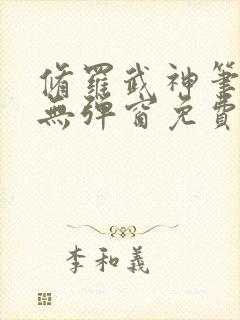 脩羅武神筆
無彈窗免費
李和義